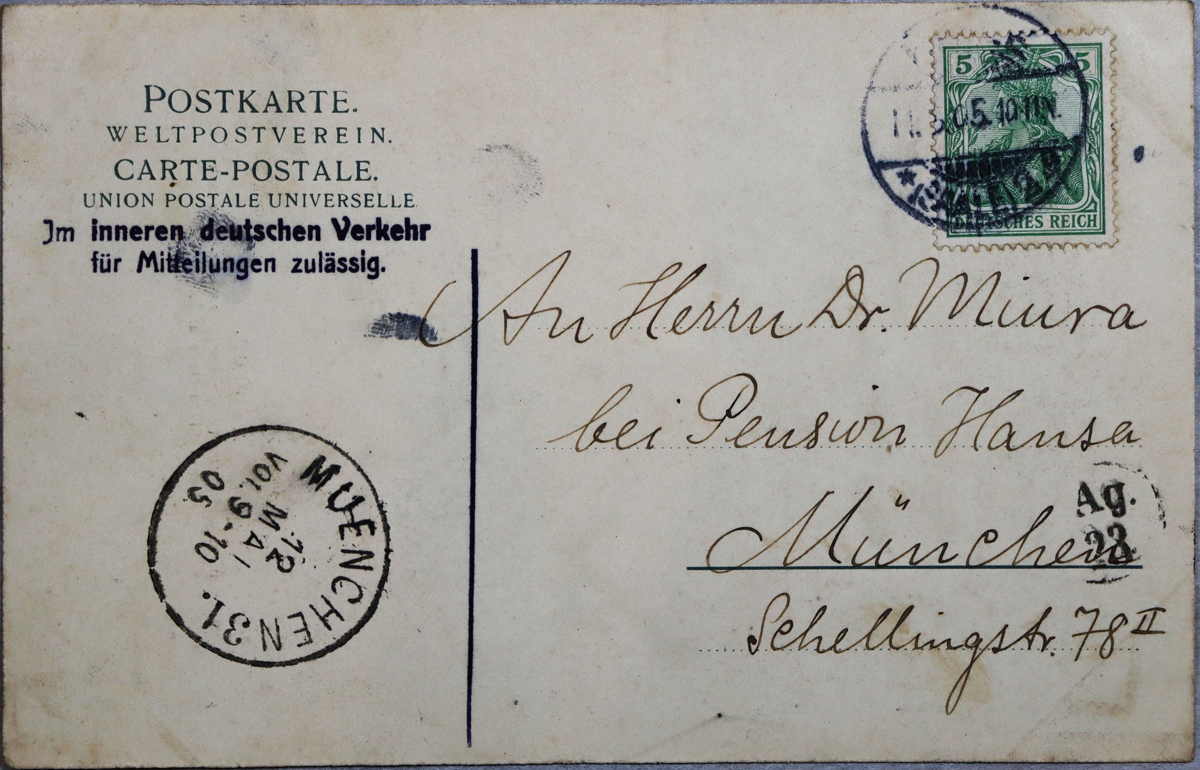 POSTKARTE.
WELTPOSTVEREIN.
CARTE-POSTALE.
UNION POSTALE UNIVERSELLE
Im inneren deutschen Verkehr
für Mitteilungen zulässig.
5 5
DEUTSCHES REICH
5.05. 10-11N.
*(SAALE) 2
An Herrn Dr. Miura
bei Pension Hansa
München
Schellingstr. 78 II
Ag.
23
MUENCHEN 31.
12
MAI
VOR. 9-10
05